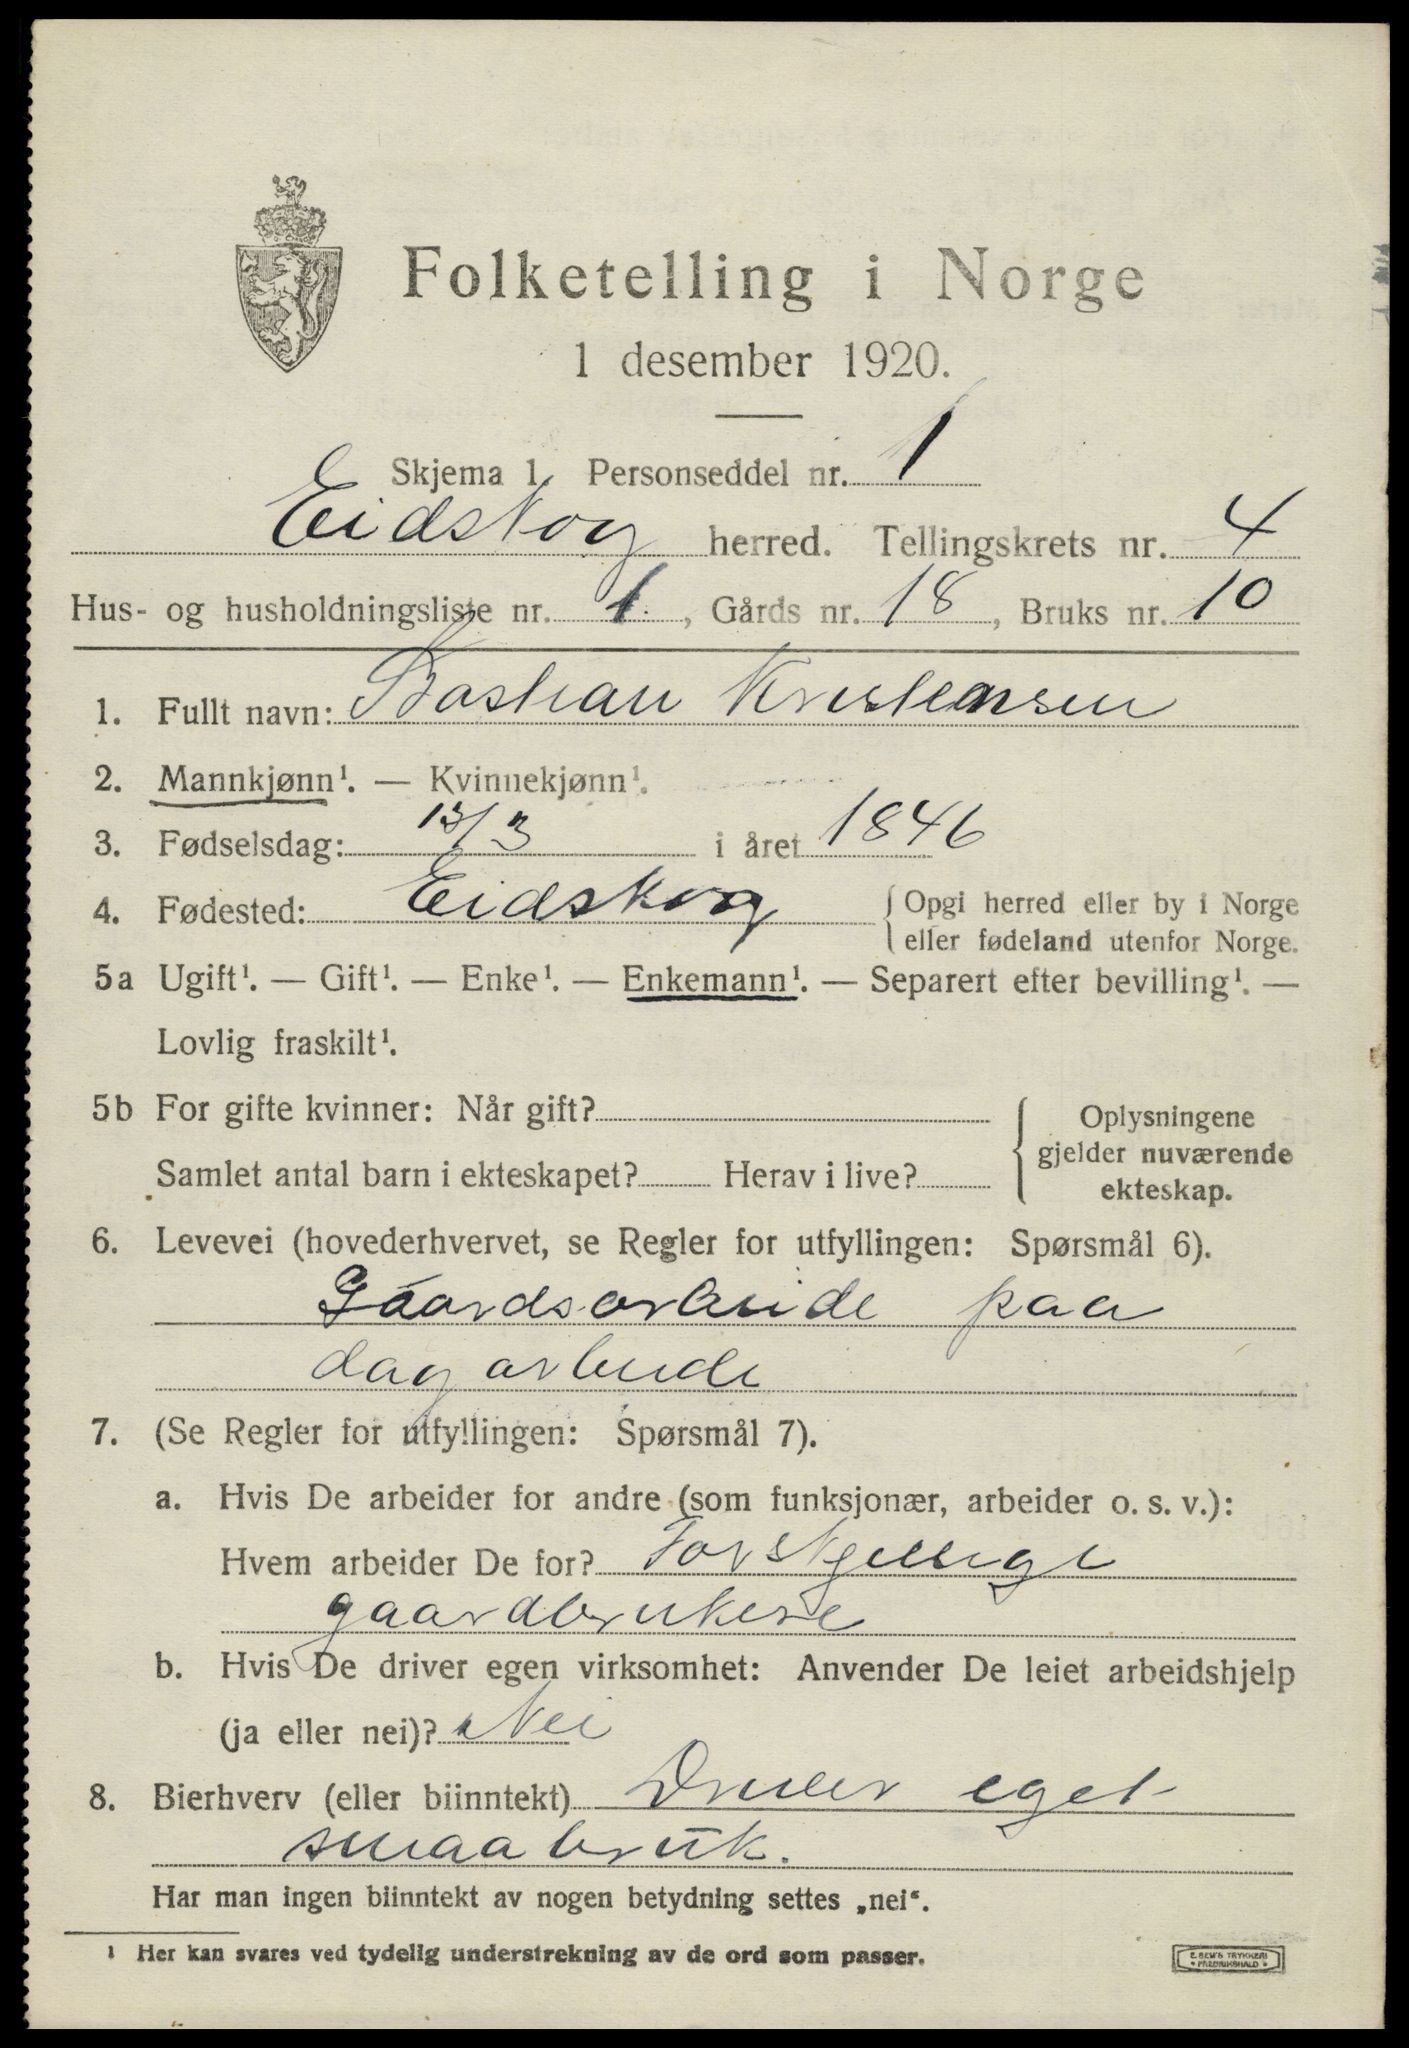 Folketelling i Norge
1 desember 1920.
Skjema 1. Personseddel nr. 1
Eidskog herred. Tellingskrets nr. 4
Hus- og husholdningsliste nr. 1, Gårds nr. 18, Bruks nr. 10
1. Fullt navn: Bastian Kristensen
2. Mannkjønn¹. — Kvinnekjønn¹.
3. Fødselsdag: 13/3 i året 1846
4. Fødested: Eidskog { Opgi herred eller by i Norge
eller fødeland utenfor Norge.
5a Ugift¹. — Gift¹. — Enke¹. — Enkemann¹. — Separert efter bevilling¹. —
Lovlig fraskilt¹.
5b For gifte kvinner: Når gift? { Oplysningene
gjelder nuværende
Samlet antal barn i ekteskapet? Herav i live?
ekteskap.
6. Levevei (hovederhvervet, se Regler for utfyllingen: Spørsmål 6).
Gaardsarbeide paa
dagarbeide
7. (Se Regler for utfyllingen: Spørsmål 7).
a. Hvis De arbeider for andre (som funksjonær, arbeider o. s. v.):
Hvem arbeider De for? Forskjellige
gaardbrukere
b. Hvis De driver egen virksomhet: Anvender De leiet arbeidshjelp
(ja eller nei)? Nei
8. Bierhverv (eller biinntekt) Driver eget
smaabruk.
Har man ingen biinntekt av nogen betydning settes „nei“.
1 Her kan svares ved tydelig understrekning av de ord som passer.
E. SEM'S TRYKKERI
FREDRIKSHALD